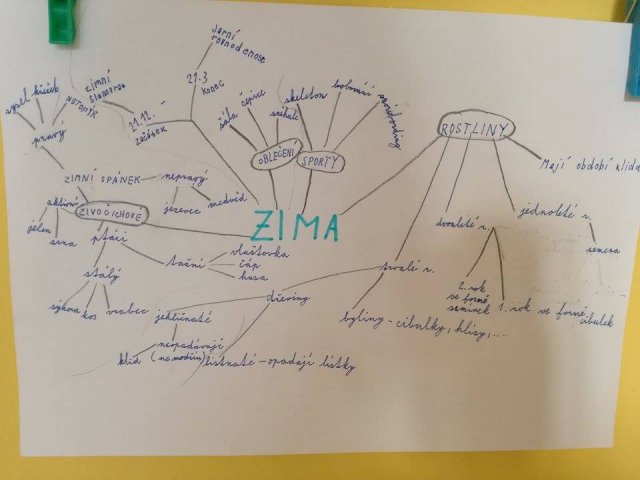 Jarní
rovnodennost
21.3
konec
zimní
slunovrat
21.12.
začátek
sysel
křeček
NETOPÝR
pravý
ZIMNÍ SPÁNEK
nepravý
jezevec
medvěd
šála
čepice
sněhule
OBLEČENÍ
skeleton
bobování
snowboarding
SPORTY
ROSTLINY
Mají období klidu
dvouleté r.
jednoleté r.
semena
2. rok
ve formě
semínek
1. rok ve formě
cibulek
trvalé r.
byliny - cibulky, hlízy, ...
dřeviny
jehličnaté
neopadávají
(ne modřín)
listnaté - opadají lístky
ZIMA
ŽIVOČICHOVÉ
aktivní
jelen
srna
ptáci
stálý
sýkora
kos
vrabec
tažní
vlaštovka
čáp
husa